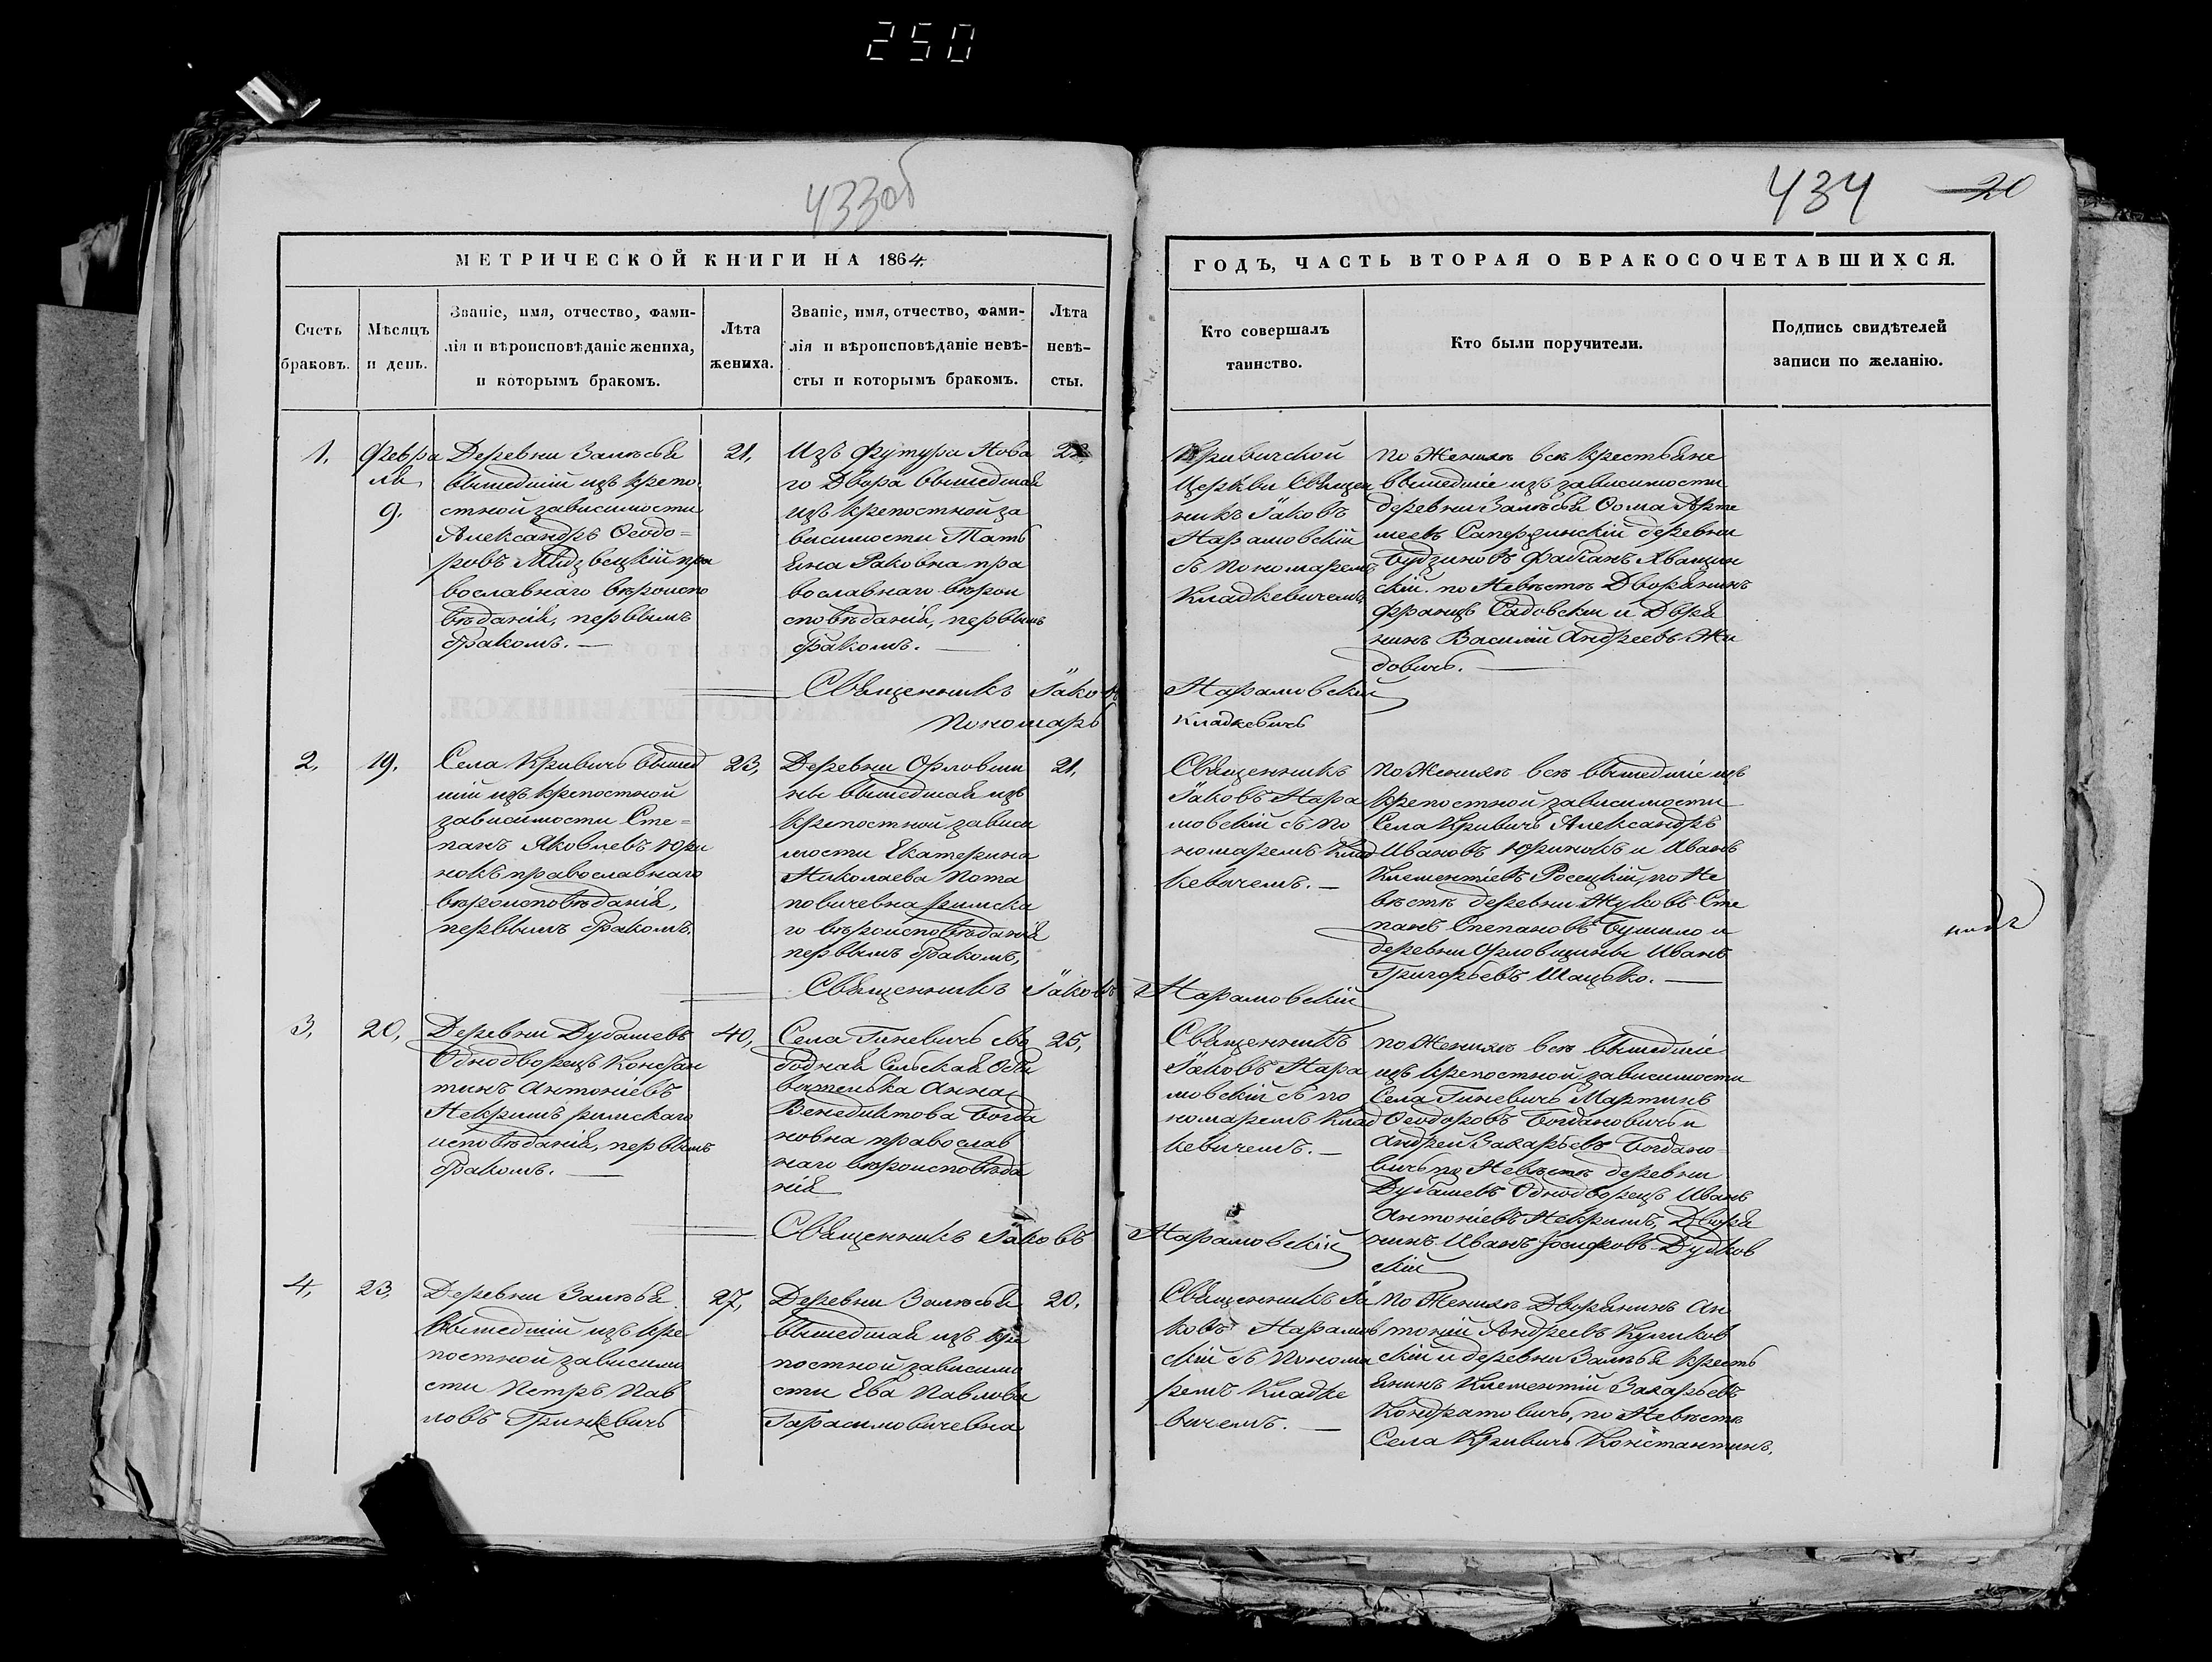 250
433об
434 20
МЕТРИЧЕСКОЙ КНИГИ НА 1864.
Счетъ браковъ.
Мѣсяцъ и день.
Званіе, имя, отчество, фами-
лія и вѣроисповѣданіе жениха,
и которымъ бракомъ.
Лѣта
жениха.
Званіе, имя, отчество, фами-
лія и вѣроисповѣданіе невѣ-
сты и которымъ бракомъ.
Лѣта
невѣ-
сты.
ГОДЪ, ЧАСТЬ ВТОРАЯ О БРАКОСОЧЕТАВШИХСЯ.
Кто совершалъ
таинство.
Кто были поручители.
Подпись свидѣтелей
записи по желанію.
1.
Февра
ля
9.
Деревни Залѣсья
вышедшій изъ крепо
стной зависимости
Александръ Ѳеодо=
ровъ Мидзвецкій пра
вославнаго вѣроиспо
вѣданія, первымъ
бракомъ. —
21,
Изъ Футура Нова
го Двора вышедшая
изъ крепостной за
висимости Тать
яна Раковна пра
вославнаго вѣрои
сповѣданія, первымъ
бракомъ. —
Кривичской
Церкви Священ
никъ Іаковъ
Нарамовскій
съ пономаремъ
Кладкевичемъ
по Женихѣ всѣ крестьяне
вышедшіе изъ зависимости
деревни Залѣсья Ѳома Арте
меевъ деревни
Будзиновъ
скій. по Невѣстѣ Дворянинъ
Францъ Садовскій и Дворя
нинъ Василій Андреевъ Жи
довичъ. —
Священникъ Іаковъ Нарамовскій
Пономарь Кладкевичъ
2,
19.
Села Кривичъ вышед
шій изъ крепостной
зависимости Сте=
панъ Яковлевъ Юри
нокъ православнаго
вѣроисповѣданія,
первымъ бракомъ.
23,
Деревни Орловщи
ны вышедшая изъ
крепостной зависи
мости Екатерина
Николаева Пота
повичевна римска
го вѣроисповѣданія
первымъ бракомъ,
21.
Священникъ
Іаковъ Нара
мовскій съ по
номаремъ Клад
кевичемъ. —
по Женихѣ всѣ вышедшіе изъ
крепостной зависимости
Села Кривичъ Александръ
Ивановъ Юринокъ и Иванъ
Климентіевъ Росецкій, по Не
вѣстѣ деревни Жуковъ Сте
панъ Степановъ Бушило и
деревни Орловщины Иванъ
Григорьевъ Шацько. —
Священникъ Іаковъ Нарамовскій
3,
20,
Деревни Дубашевъ
Однодворецъ Констан
тинъ Антоніевъ
Некрашъ римскаго
исповѣданія, первымъ
бракомъ. —
40,
Села Гиневичъ сво
бодная Сельская Оби
вателька Анна
Венедиктова Богда
новна православ
наго вѣроисповѣда
нія
25,
Священникъ
Іаковъ Нара
мовскій съ по
номаремъ Клад
кевичемъ. —
по Женихѣ всѣ вышедшіе
изъ крепостной зависимости
Села Гиневичъ Мартинъ
Ѳеодоровъ Богдановичъ и
Андрей Захарьевъ Богдано=
вичъ по Невѣстѣ деревни
Дубашевъ Однодворецъ Иванъ
Антоніевъ Некрашъ, Дворя
нинъ Иванъ Іосифовъ Дудков
скій
Священникъ Іаковъ Нарамовскій
4,
23,
Деревни Залѣсья
вышедшій изъ кре
постной зависимо
сти Петръ Пав
ловъ Гринкевичъ
27,
Деревни Залѣсья
вышедшая изъ кре
постной зависимо
сти Ева Павлова
Гарасимовичевна
20.
Священникъ Іа
ковъ Нарамов
скій съ Понома
ремъ Кладке
вичемъ. —
по Женихѣ Дворянинъ Ан
тоній Андреевъ Куликов
скій и деревни Залѣсья кресть
янинъ Климентій Захарьевъ
Кондратовичъ, по Невѣстѣ
Села Кривичъ Константинъ,